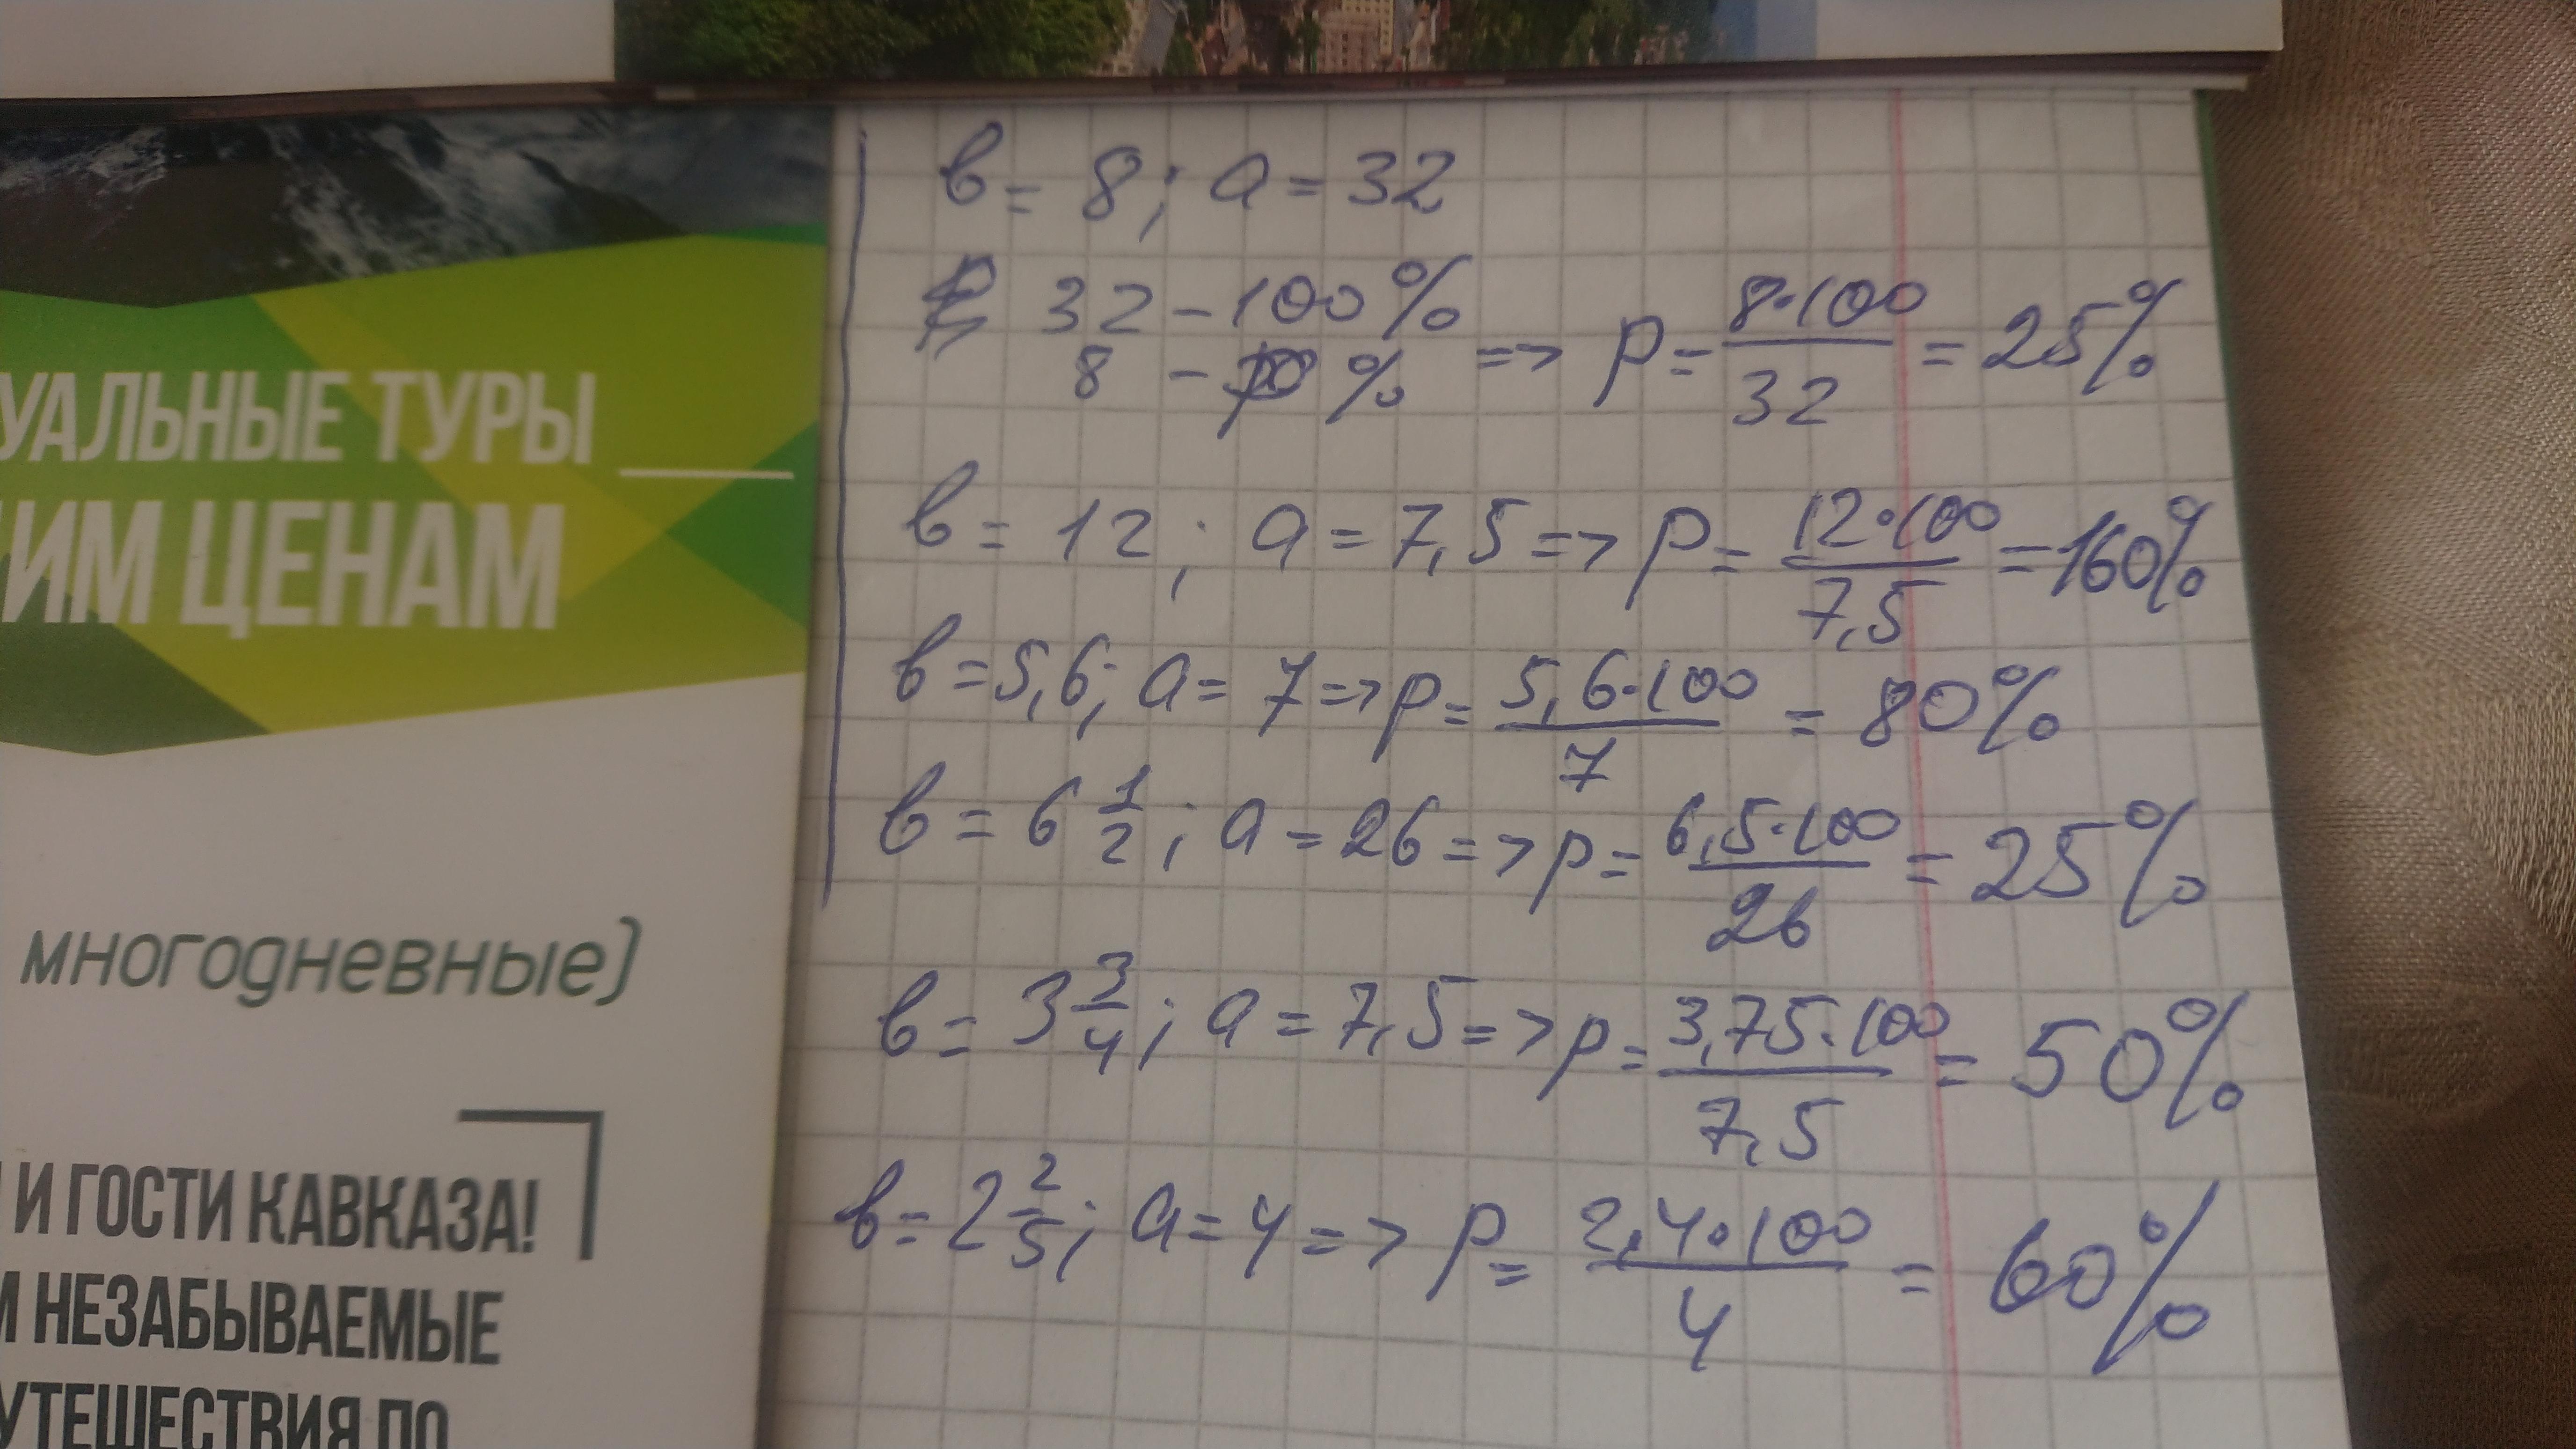 УАЛЬНЫЕ ТУРЫ
ИМ ЦЕНАМ
многодневные)
И ГОСТИ КАВКАЗА!
НЕЗАБЫВАЕМЫЕ
УТЕШЕСТВИЯ ПО
в = 8; а = 32
32 – 100%
8 – p % => p = 8·100/32 = 25%
в = 12; а = 7,5 => p = 12·100/7,5 = 160%
в = 5,6; а = 7 => p = 5,6·100/7 = 80%
в = 6 1/2; а = 26 => p = 6,5·100/26 = 25%
в = 3 3/4; а = 7,5 => p = 3,75·100/7,5 = 50%
в = 2 2/5; а = 4 => p = 2,4·100/4 = 60%